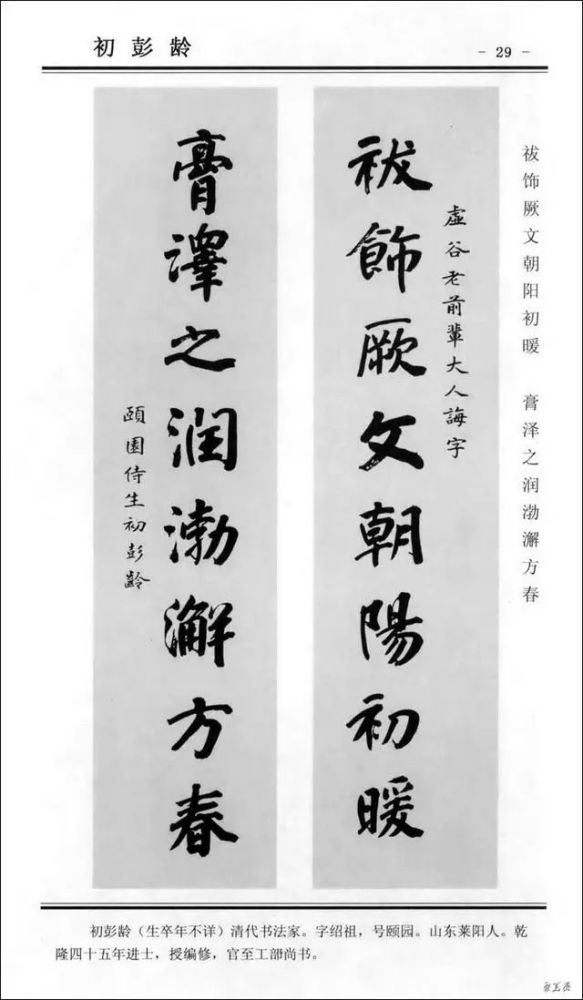 初彭龄
- 29 -
祓饰厥文朝阳初暖　膏泽之润渤澥方春
虚谷老前輩大人誨字
祓飾厥文朝陽初暖
膏澤之润渤澥方春
頤園侍生初彭齡
初彭龄（生卒年不详）清代书法家。字绍祖，号颐园。山东莱阳人。乾
隆四十五年进士，授编修，官至工部尚书。